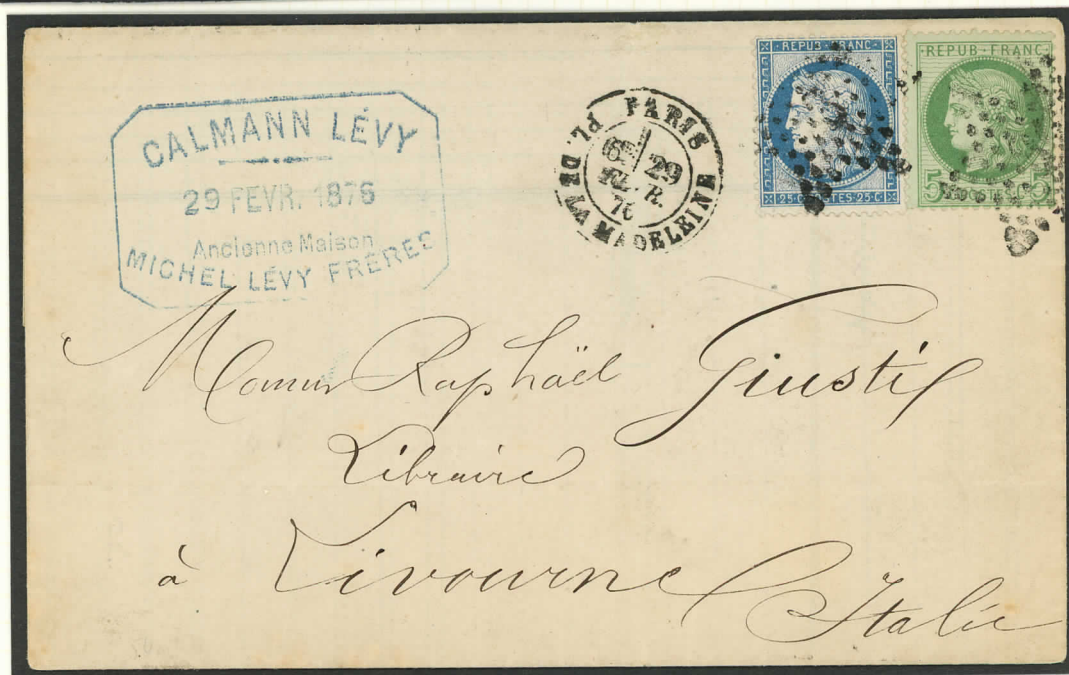 CALMANN LÉVY
29 FEVR. 1876
Ancienne Maison
MICHEL LÉVY FRÈRES
PARIS
29
76
PL. DE LA MADELEINE
REPUB·FRANC·
25·C·POSTES·25·C·
·REPUB·FRANC·
5 5
Raphaël Giusti
Libraire
à Livourne
Italie